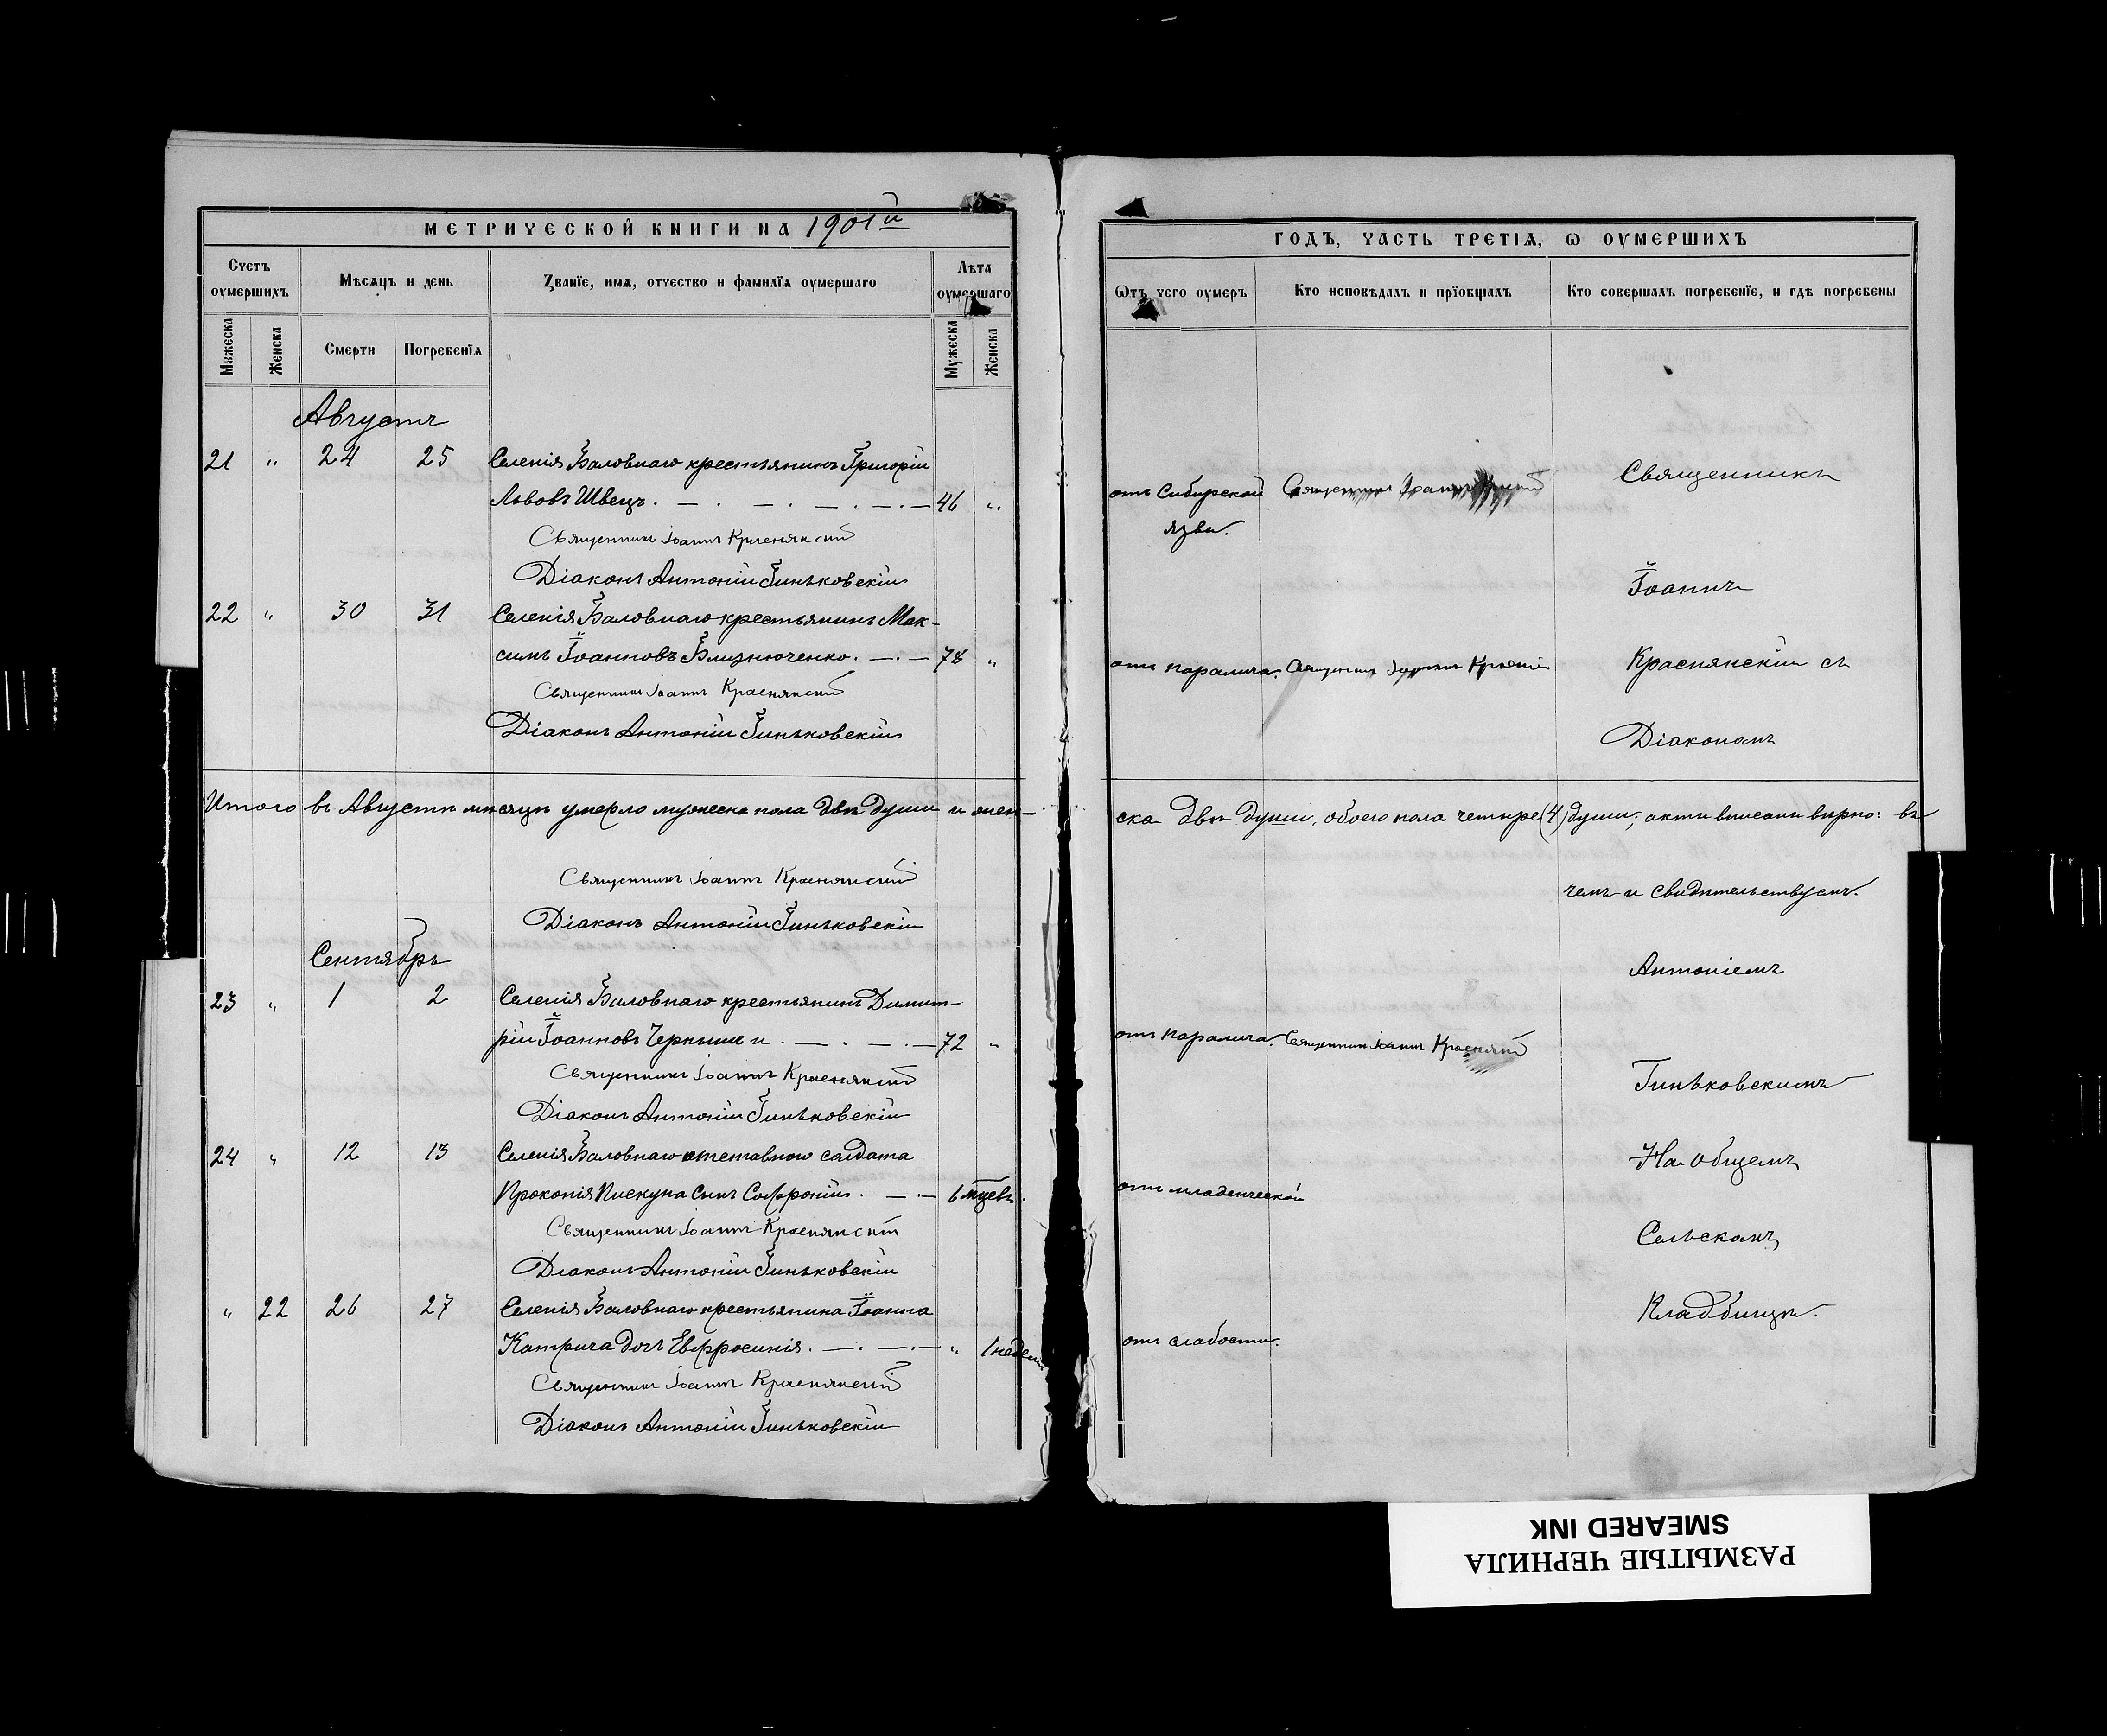 МЕТРИЧЕСКОЙ КНИГИ НА 1901й
Счетъ оумершихъ
Мѣсяцъ и день
Званїе, имя, отчество и фамилїя оумершаго
Лѣта оумершаго
Мужеска
Женска
Смерти
Погребенїя
Мужеска
Женска
Августъ
21 " 24 25 Селенія Баловнаго крестьянинъ Григорій
Львовъ Швецъ. — . — . — . — . — 46 "
Священникъ Іоаннъ Краснянскій
Діаконъ Антоній Гиньковскій
22 " 30 31 Селенія Баловнаго крестьянинъ Мак-
симъ Іоанновъ Близнюченко. — . — 78 "
Священникъ Іоаннъ Краснянскій
Діаконъ Антоній Гиньковскій
Итого въ Августѣ мѣсяцѣ умерло мужеска пола двѣ души и жен-
Священникъ Іоаннъ Краснянскій
Діаконъ Антоній Гиньковскій
Сентябрь
23 " 1 2 Селенія Баловнаго крестьянинъ Димит-
рій Іоанновъ . — . — . — 72 "
Священникъ Іоаннъ Краснянскій
Діаконъ Антоній Гиньковскій
24 " 12 13 Селенія Баловнаго отставного солдата
Прокопія Пискуна сынъ Софроній. — . — 6 мцевъ.
Священникъ Іоаннъ Краснянскій
Діаконъ Антоній Гиньковскій
" 22 26 27 Селенія Баловнаго крестьянина Іоанна
Катрича дочь Евфросинія. — . — . — " 1 недели
Священникъ Іоаннъ Краснянскій
Діаконъ Антоній Гиньковскій
ГОДЪ, ЧАСТЬ ТРЕТІЯ, Ѡ ОУМЕРШИХЪ
Ѡтъ чего оумеръ
Кто исповѣдалъ и прїобщалъ
Кто совершалъ погребенїе, и гдѣ погребены
Священникъ
отъ Сибирской Священникъ Іоаннъ
язвы.
Іоаннъ
отъ паралича. Священникъ Іоаннъ
Краснянскій съ
Діакономъ
ска двѣ души, обоего пола четыре (4) души; акты вписаны вѣрно: въ
чемъ и свидѣтельствуемъ.
Антоніемъ
отъ паралича. Священникъ Іоаннъ
Гиньковскимъ
На общемъ
отъ младенческой
Сельскомъ
Кладбищѣ.
отъ слабости.
РАЗМЫТЫЕ ЧЕРНИЛА
SMEARED INK